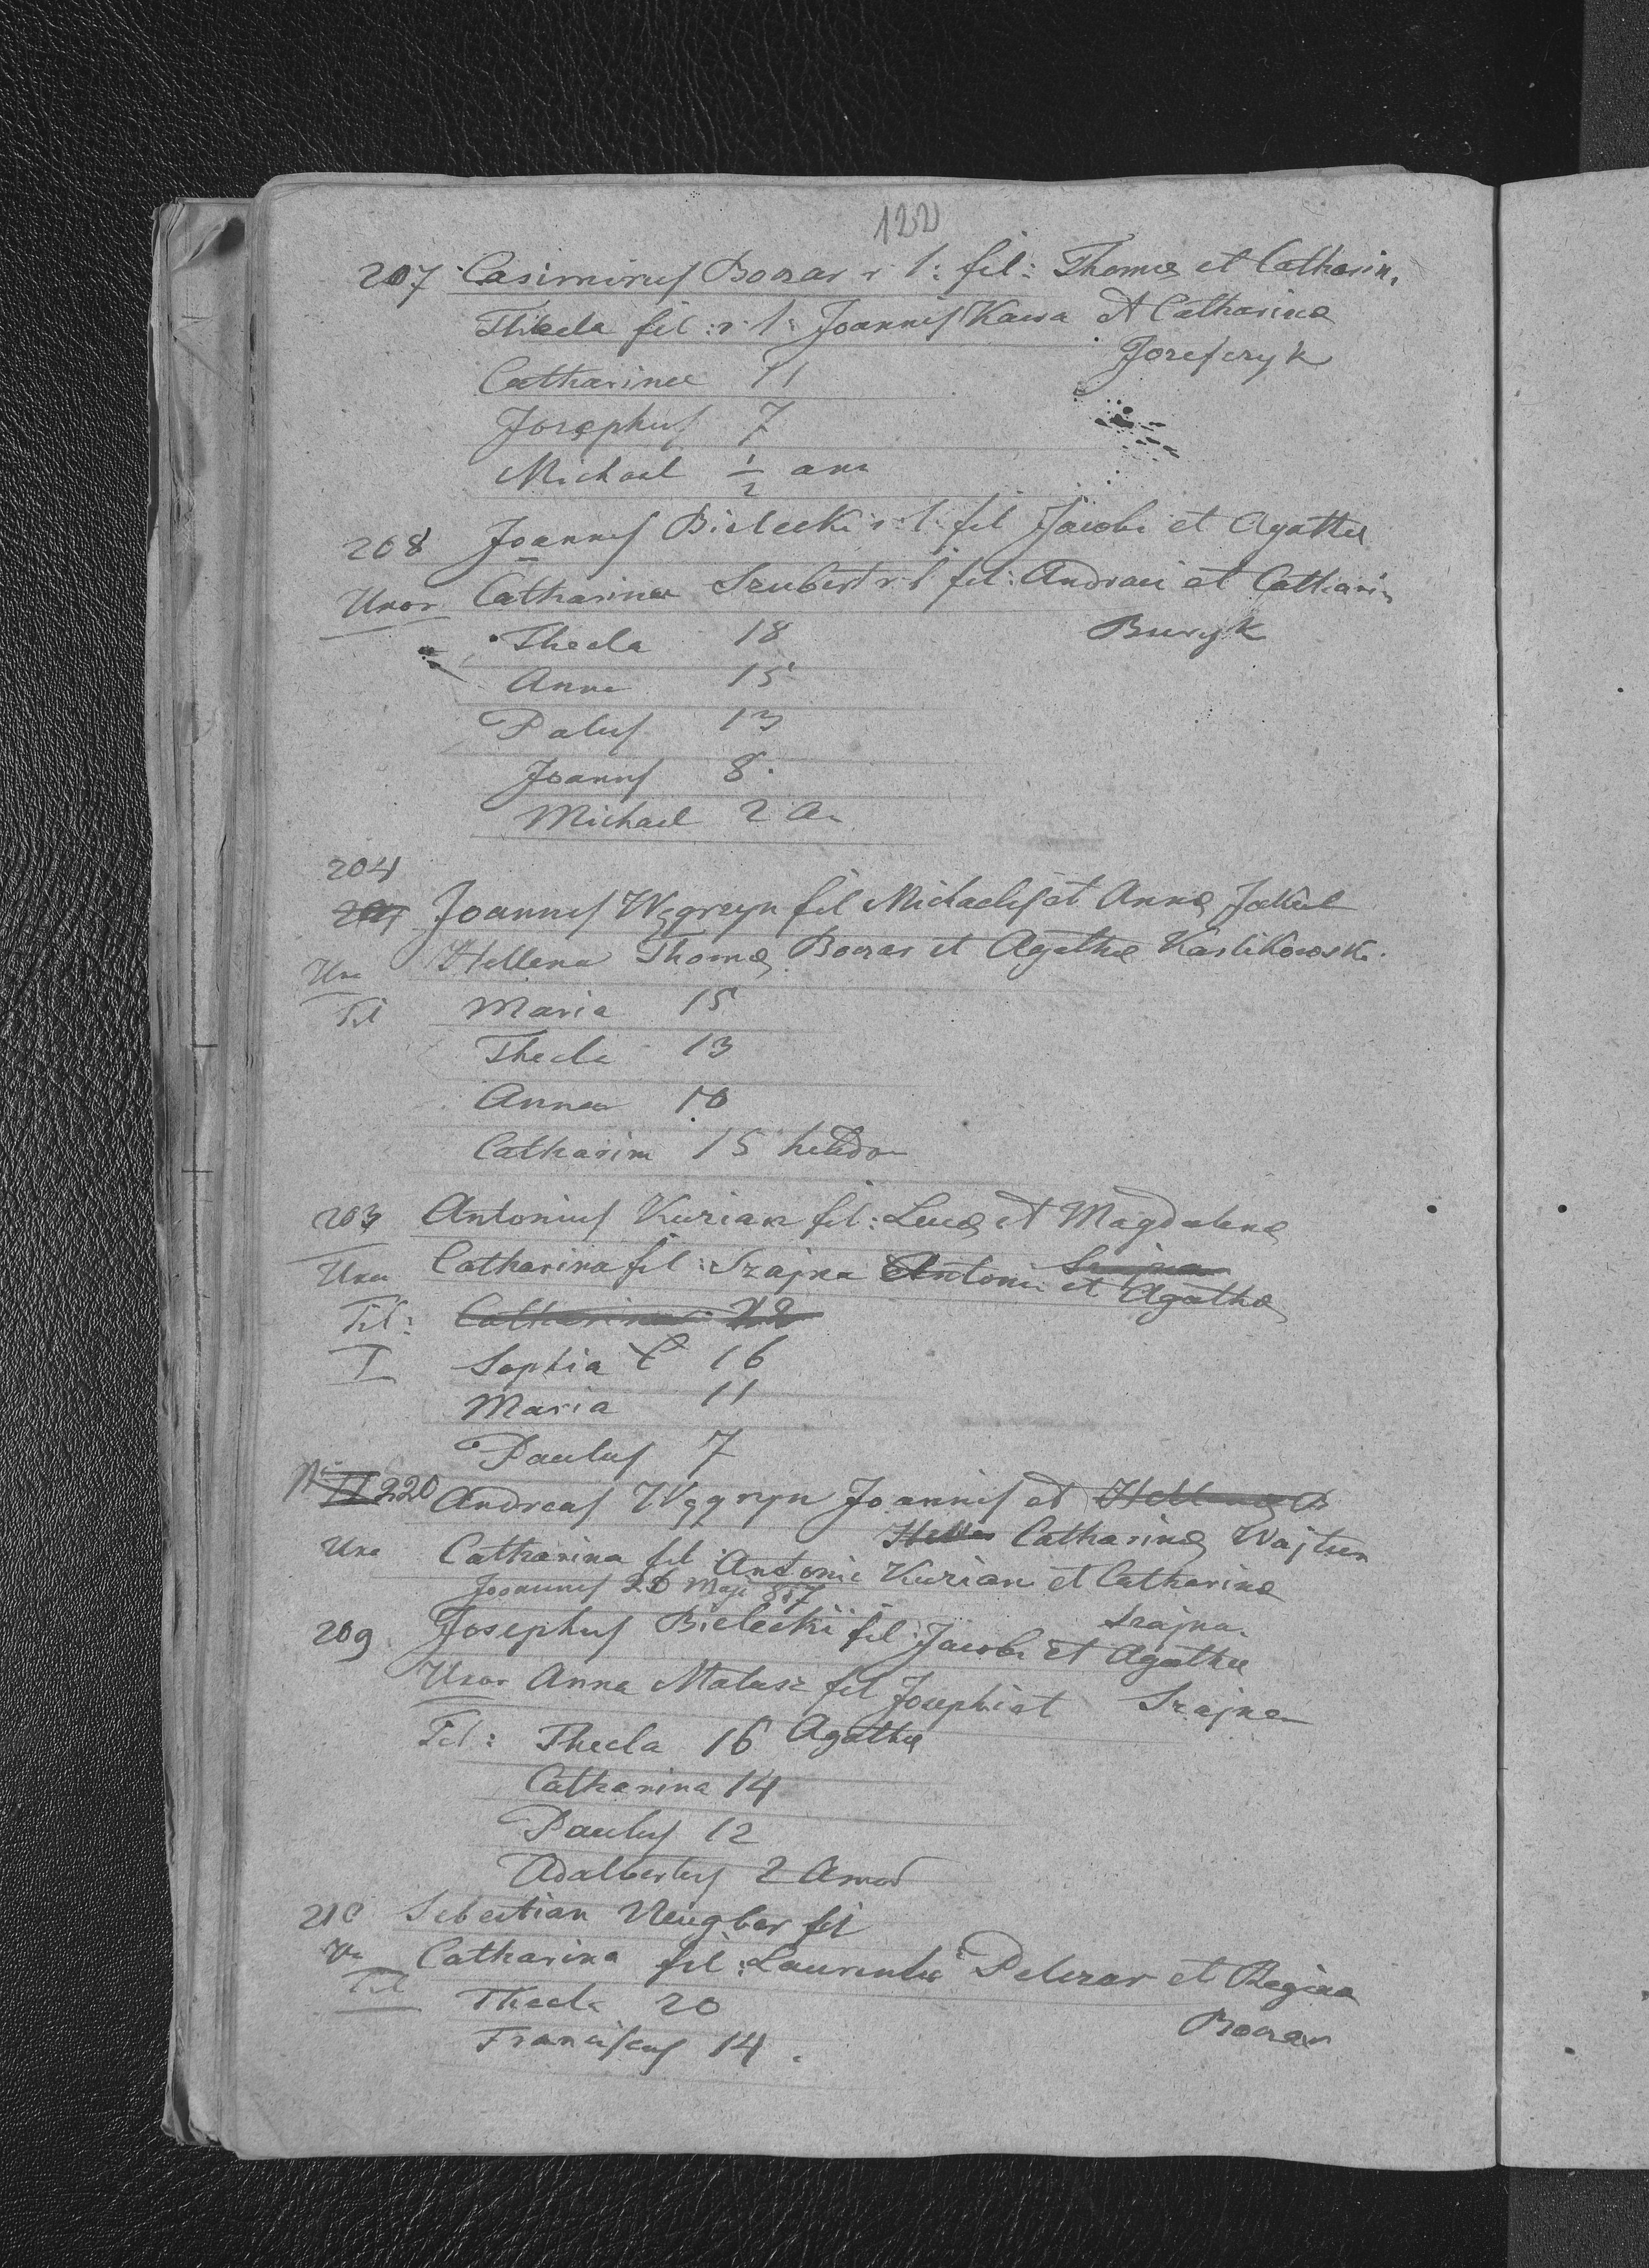 122
207 Casimirus Bonar r. l: fil: Thomæ et Catharin.
Thecla fil: r. l: Joannis Kawa et Catharinæ
Jozefczyk
Catharina 11
Josephus 7
Michael 1/2 ann
208 Joannes Bielecki r. l. fil Jacobi et Agathæ
Uxor Catharina Szubert r. l. fil: Andreæ et Catharin
Buryk
Thecla 18
Anna 15
Palus 13
Joannes 8.
Michael 2 an
204
Joannes Węgrzyn fil Michaelis et Annæ Jakiel
Uxo Hellena Thomæ Boczar et Agathæ
Fil Maria 15
Thecla 13
Anna 10
Catharina 15 hebdo
203 Antonius Kurian fil: Lucæ et Magdalenæ
Uxo Catharina fil: Szajna Antoni Szajna et Agathæ
Fil: Catharina 22
I Sophia C 16
Maria 11
Paulus 7
No II 220 Andreas Węgrzyn Joannis et Hellenæ B
Hellen Catharinæ
Uxo Catharina fil: Antoni Kurian et Catharinæ
Joannes 20 Maji 857
Szajna.
209 Josephus Bielecki fil: Jacobi et Agathæ
Uxor Anna Matusz fil Josephi et Szajna
Agathæ
Fil: Thecla 16
Catharina 14
Paulus 12
Adalbertus 2 Annor
210 Sebestian Neugbar fil
Ux Catharina fil: Laurentii Pelczar et Regina
Boczar
Fil Thecla 20
Franciscus 14.